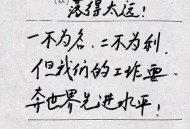 落得太远！
一不为名，二不为利，
但我们的工作要
奔世界先进水平！